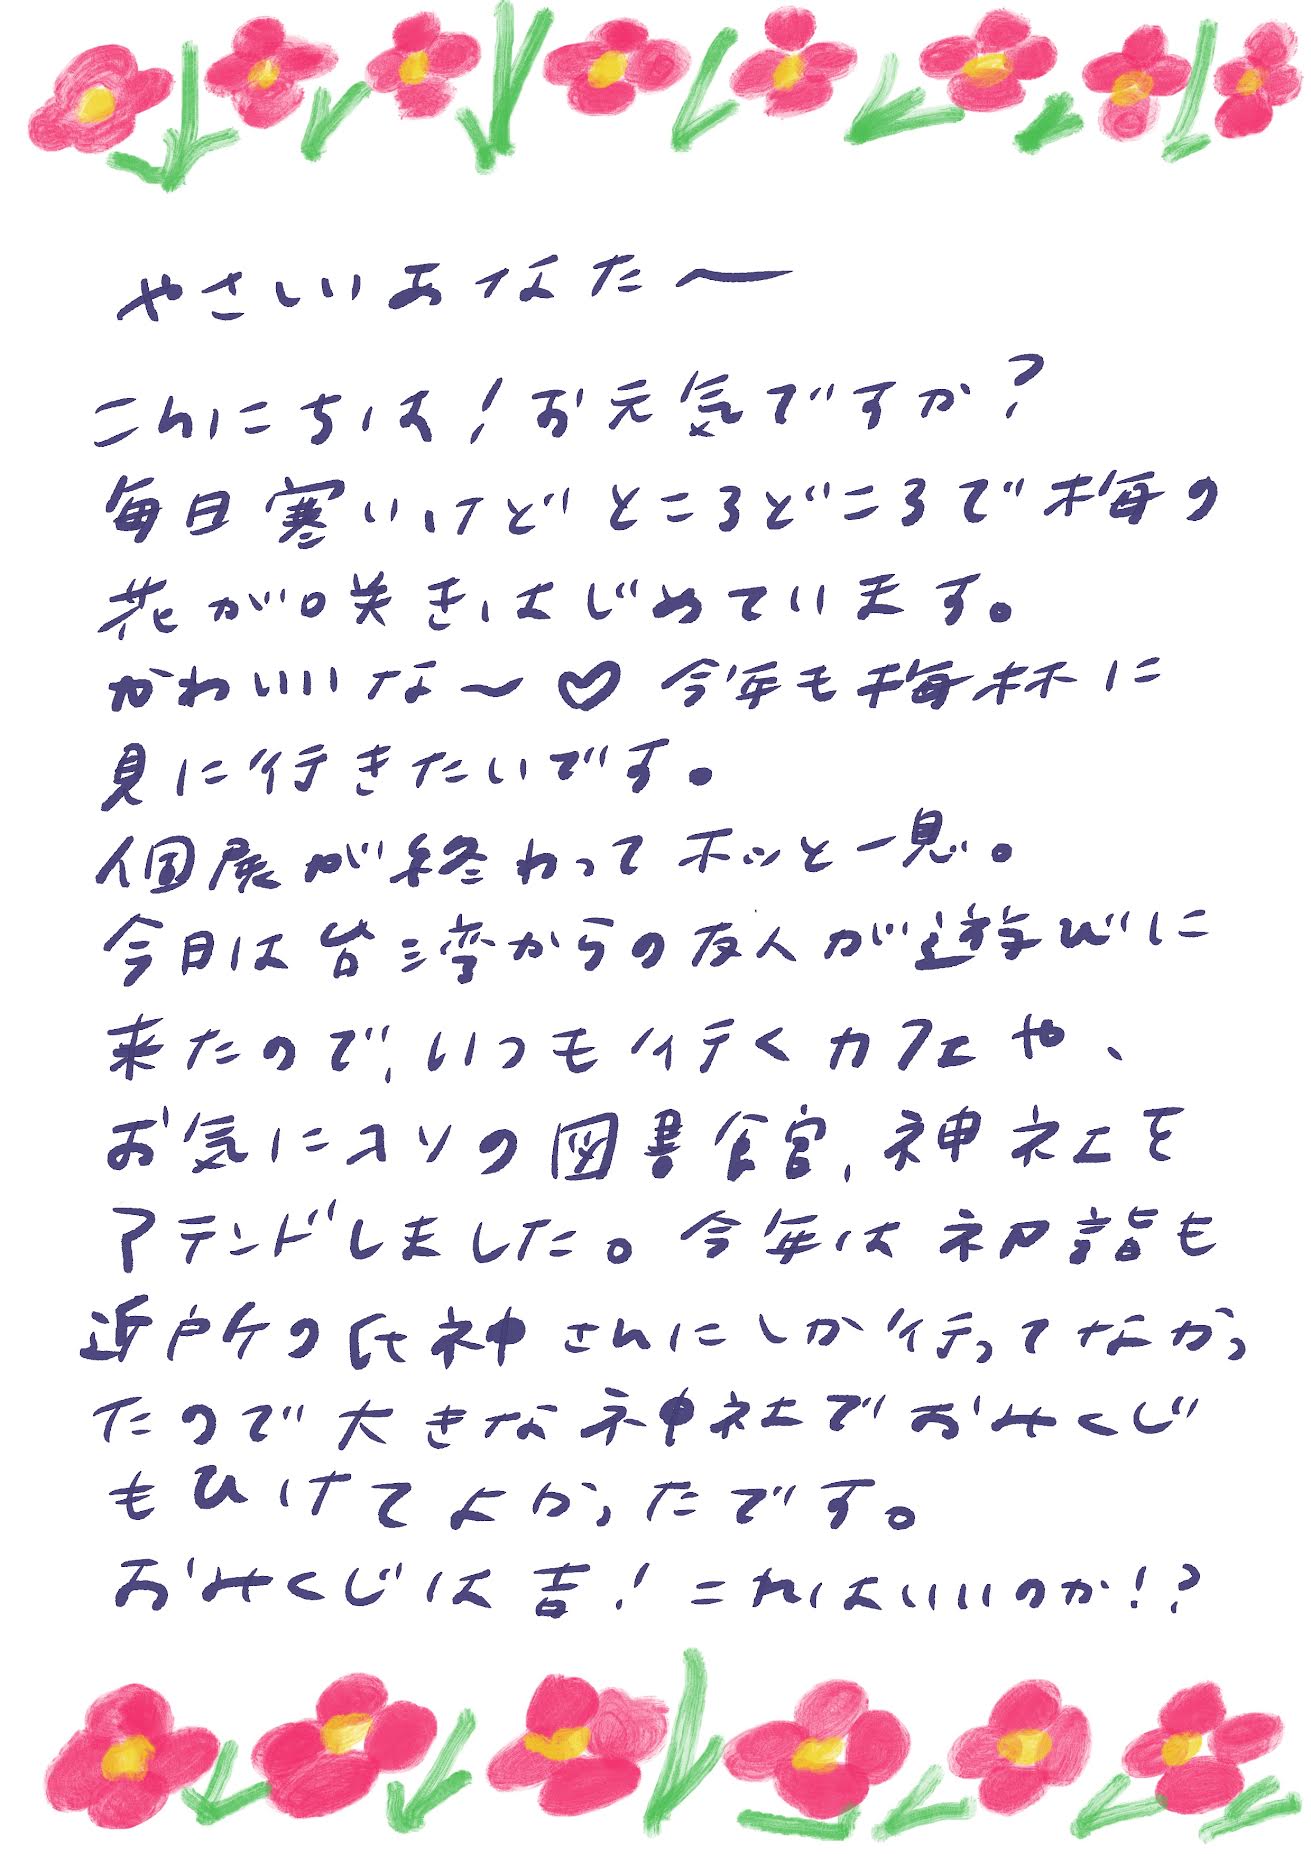 やさしいあなた〜
こんにちは！お元気ですか？
毎日寒いけどところどころで梅の
花が咲きはじめています。
かわいいな〜♡ 今年も梅林に
見に行きたいです。
個展が終わってホッと一息。
今日は台湾からの友人が遊びに
来たので、いつも行くカフェや、
お気に入りの図書館、神社を
アテンドしました。今年は初詣も
近所の氏神さんにしか行ってなかっ
たので大きな神社でおみくじ
もひけてよかったです。
おみくじは吉！これはいいのか！？